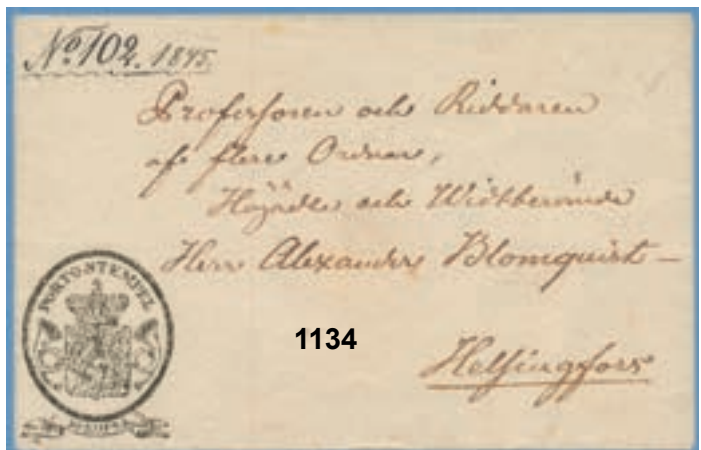 No 102. 1845.
Professoren och Riddaren
af flere Ordnar,
Högädle och Widtberömde
Herr Alexander Blomquist
Helsingfors
PORTO STEMPEL
1134